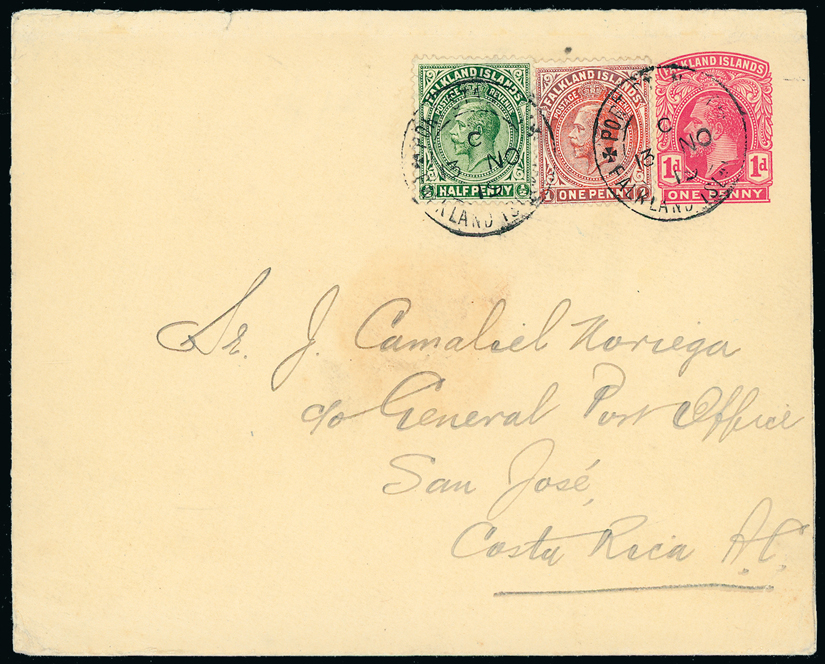 FALKLAND ISLANDS
POSTAGE REVENUE
HALF PENNY ½
FALKLAND ISLANDS
POSTAGE
ONE PENNY
FALKLAND ISLANDS
1d 1d
ONE PENNY
C
NO
12
FALKLAND IS
PORT
C
13 NO
12
FALKLAND
Sr. J. Camaliel Noriega
c/o General Post Office
San José,
Costa Rica A.C.